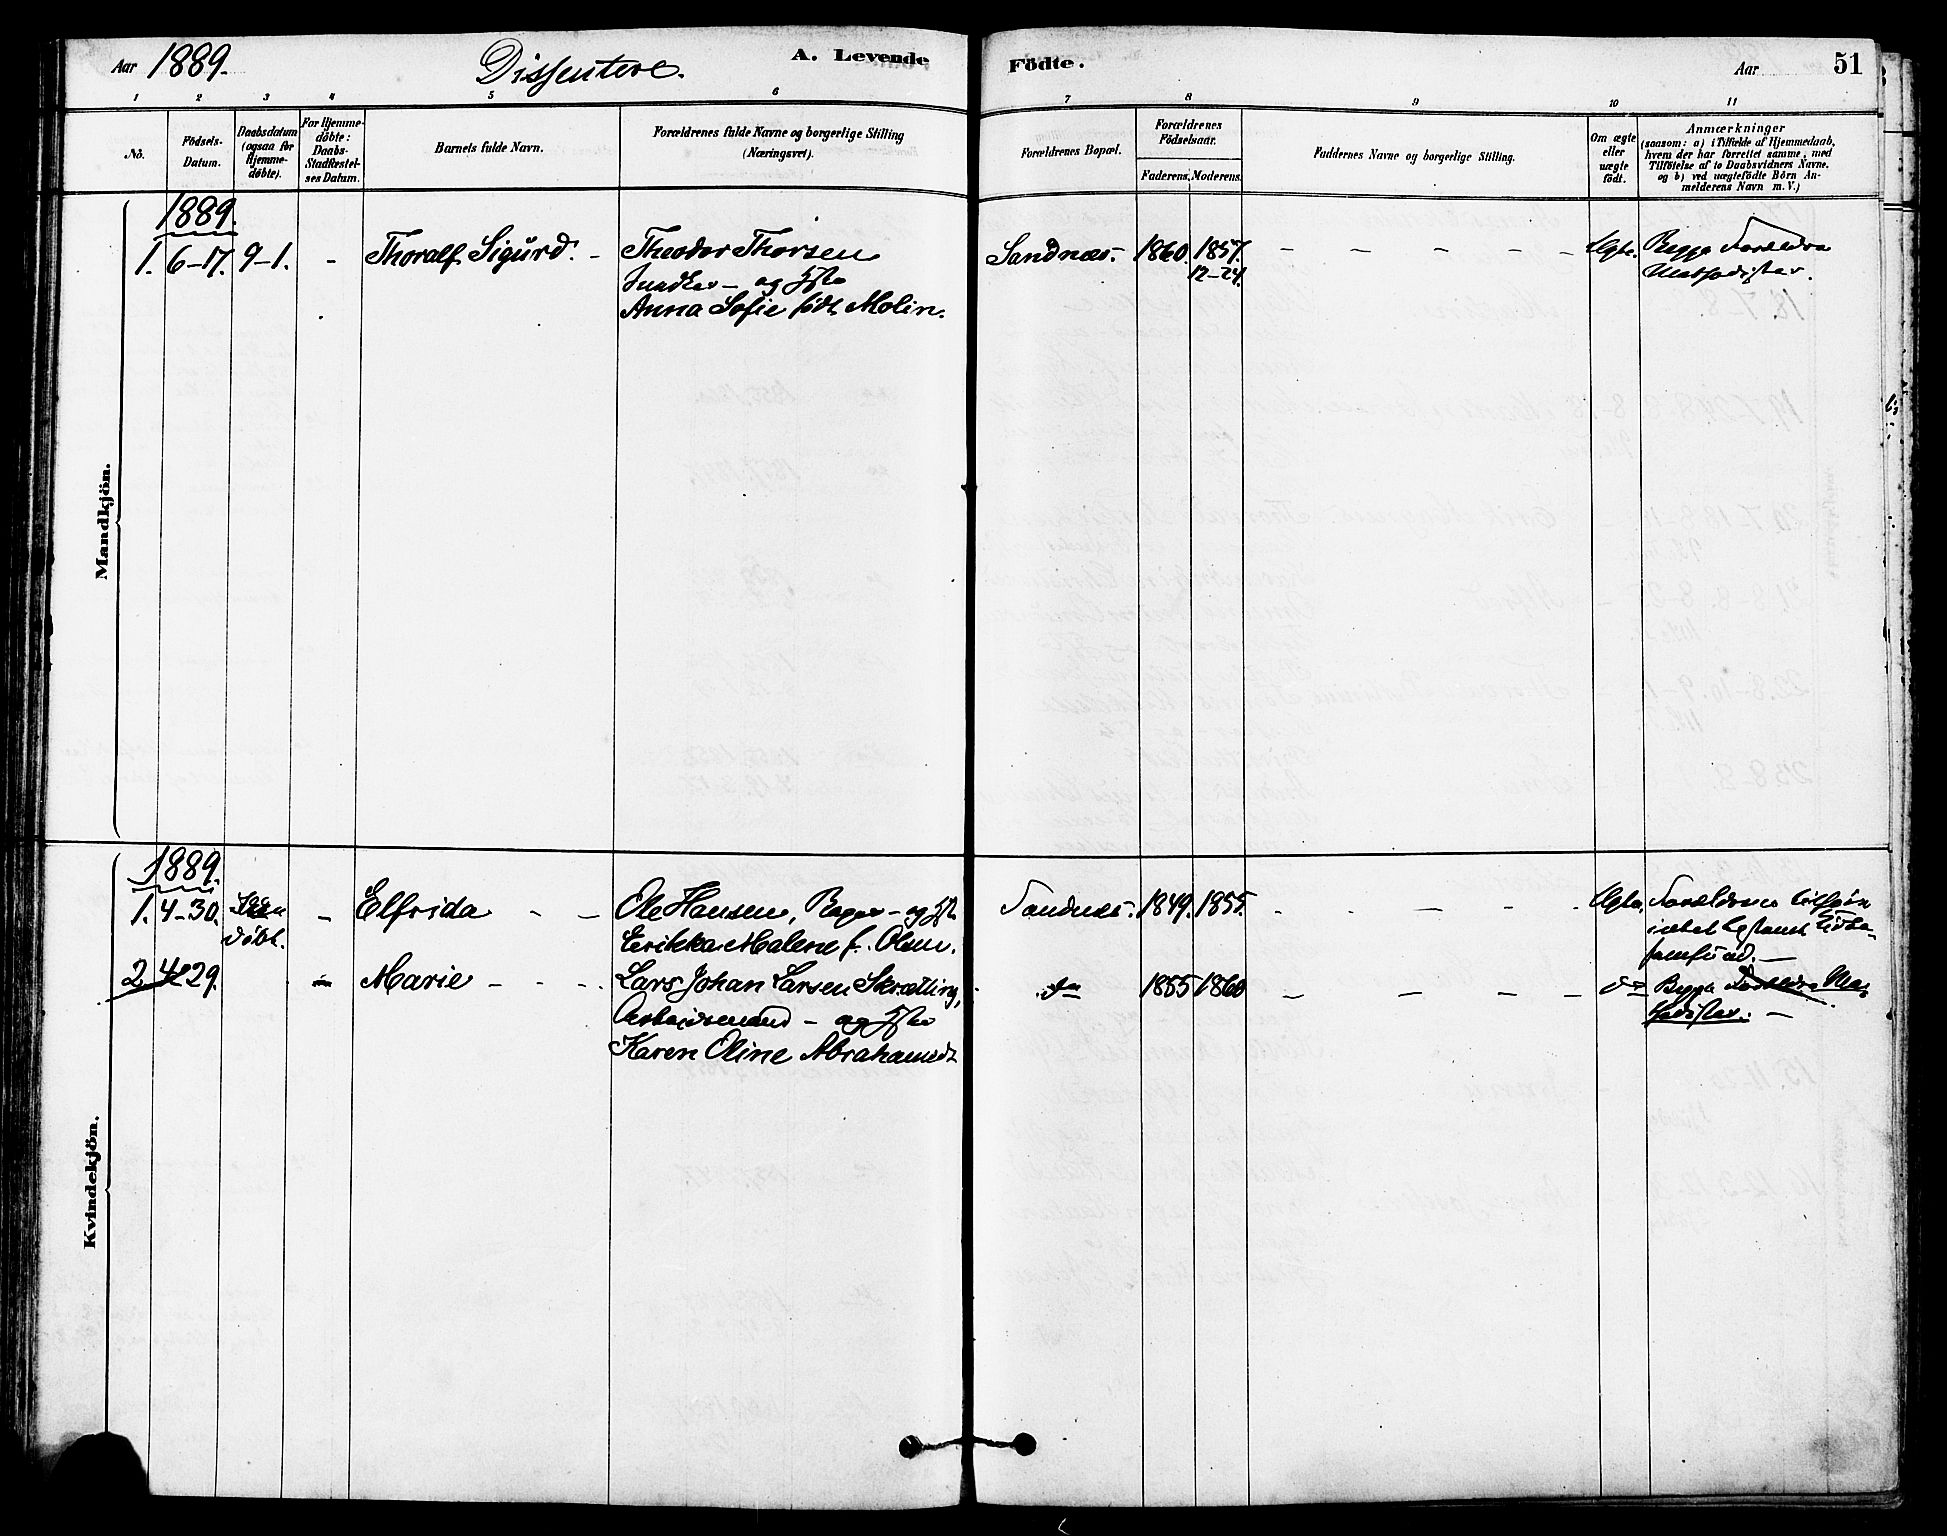 Aar 1889. Dissentere. A. Levende Födte. Aar 51
1 2 3 4 5 6 7 8 9 10 11
No.
Födsels-
Datum.
Daabsdatum
(ogsaa for
Hjemme-
döbte).
For Hjemme-
döbte:
Daabs-
Stadfæstel-
ses Datum.
Barnets fulde Navn.
Forældrenes fulde Navne og borgerlige Stilling
(Næringsvei).
Forældrenes Bopæl.
Forældrenes
Födselsaar.
Faderens. Moderens.
Faddernes Navne og borgerlige Stilling.
Om ægte
eller
uægte
födt.
Anmærkninger
(saasom: a) i Tilfælde af Hjemmedaab,
hvem der har forrettet samme, med
Tilföielse af to Daabsvidners Navne.
og b) ved uægtefödte Börn An-
melderens Navn m. V.)
Mandkjön.
1889.
1. 6-17. 9-1. - Thoralf Sigurd. - Theodor Thorsen
og Hst
Anna Sofie født Molin.
Sandnæs. 1860. 1857.
12-24.
- - - - - Ægte. Begge Forældre
Methodister.
Kvindekjön.
1889.
1. 4-30. Ikke
døbt.
- Elfrida - - Ole Hansen, Bager - og Hst
Erikka Malene f. Olsen.
Sandnes. 1849. 1855. - - - - - Ægte. Forældrene tilhøre
samfund. -
2 4-29. - Marie - - - Lars Johan Larsen Skrætting,
Arbeidsmand - og Hst
Karen Oline Abrahamsdt
do 1855 1860 - - - - - do Begge Forældre Me-
thodister. -